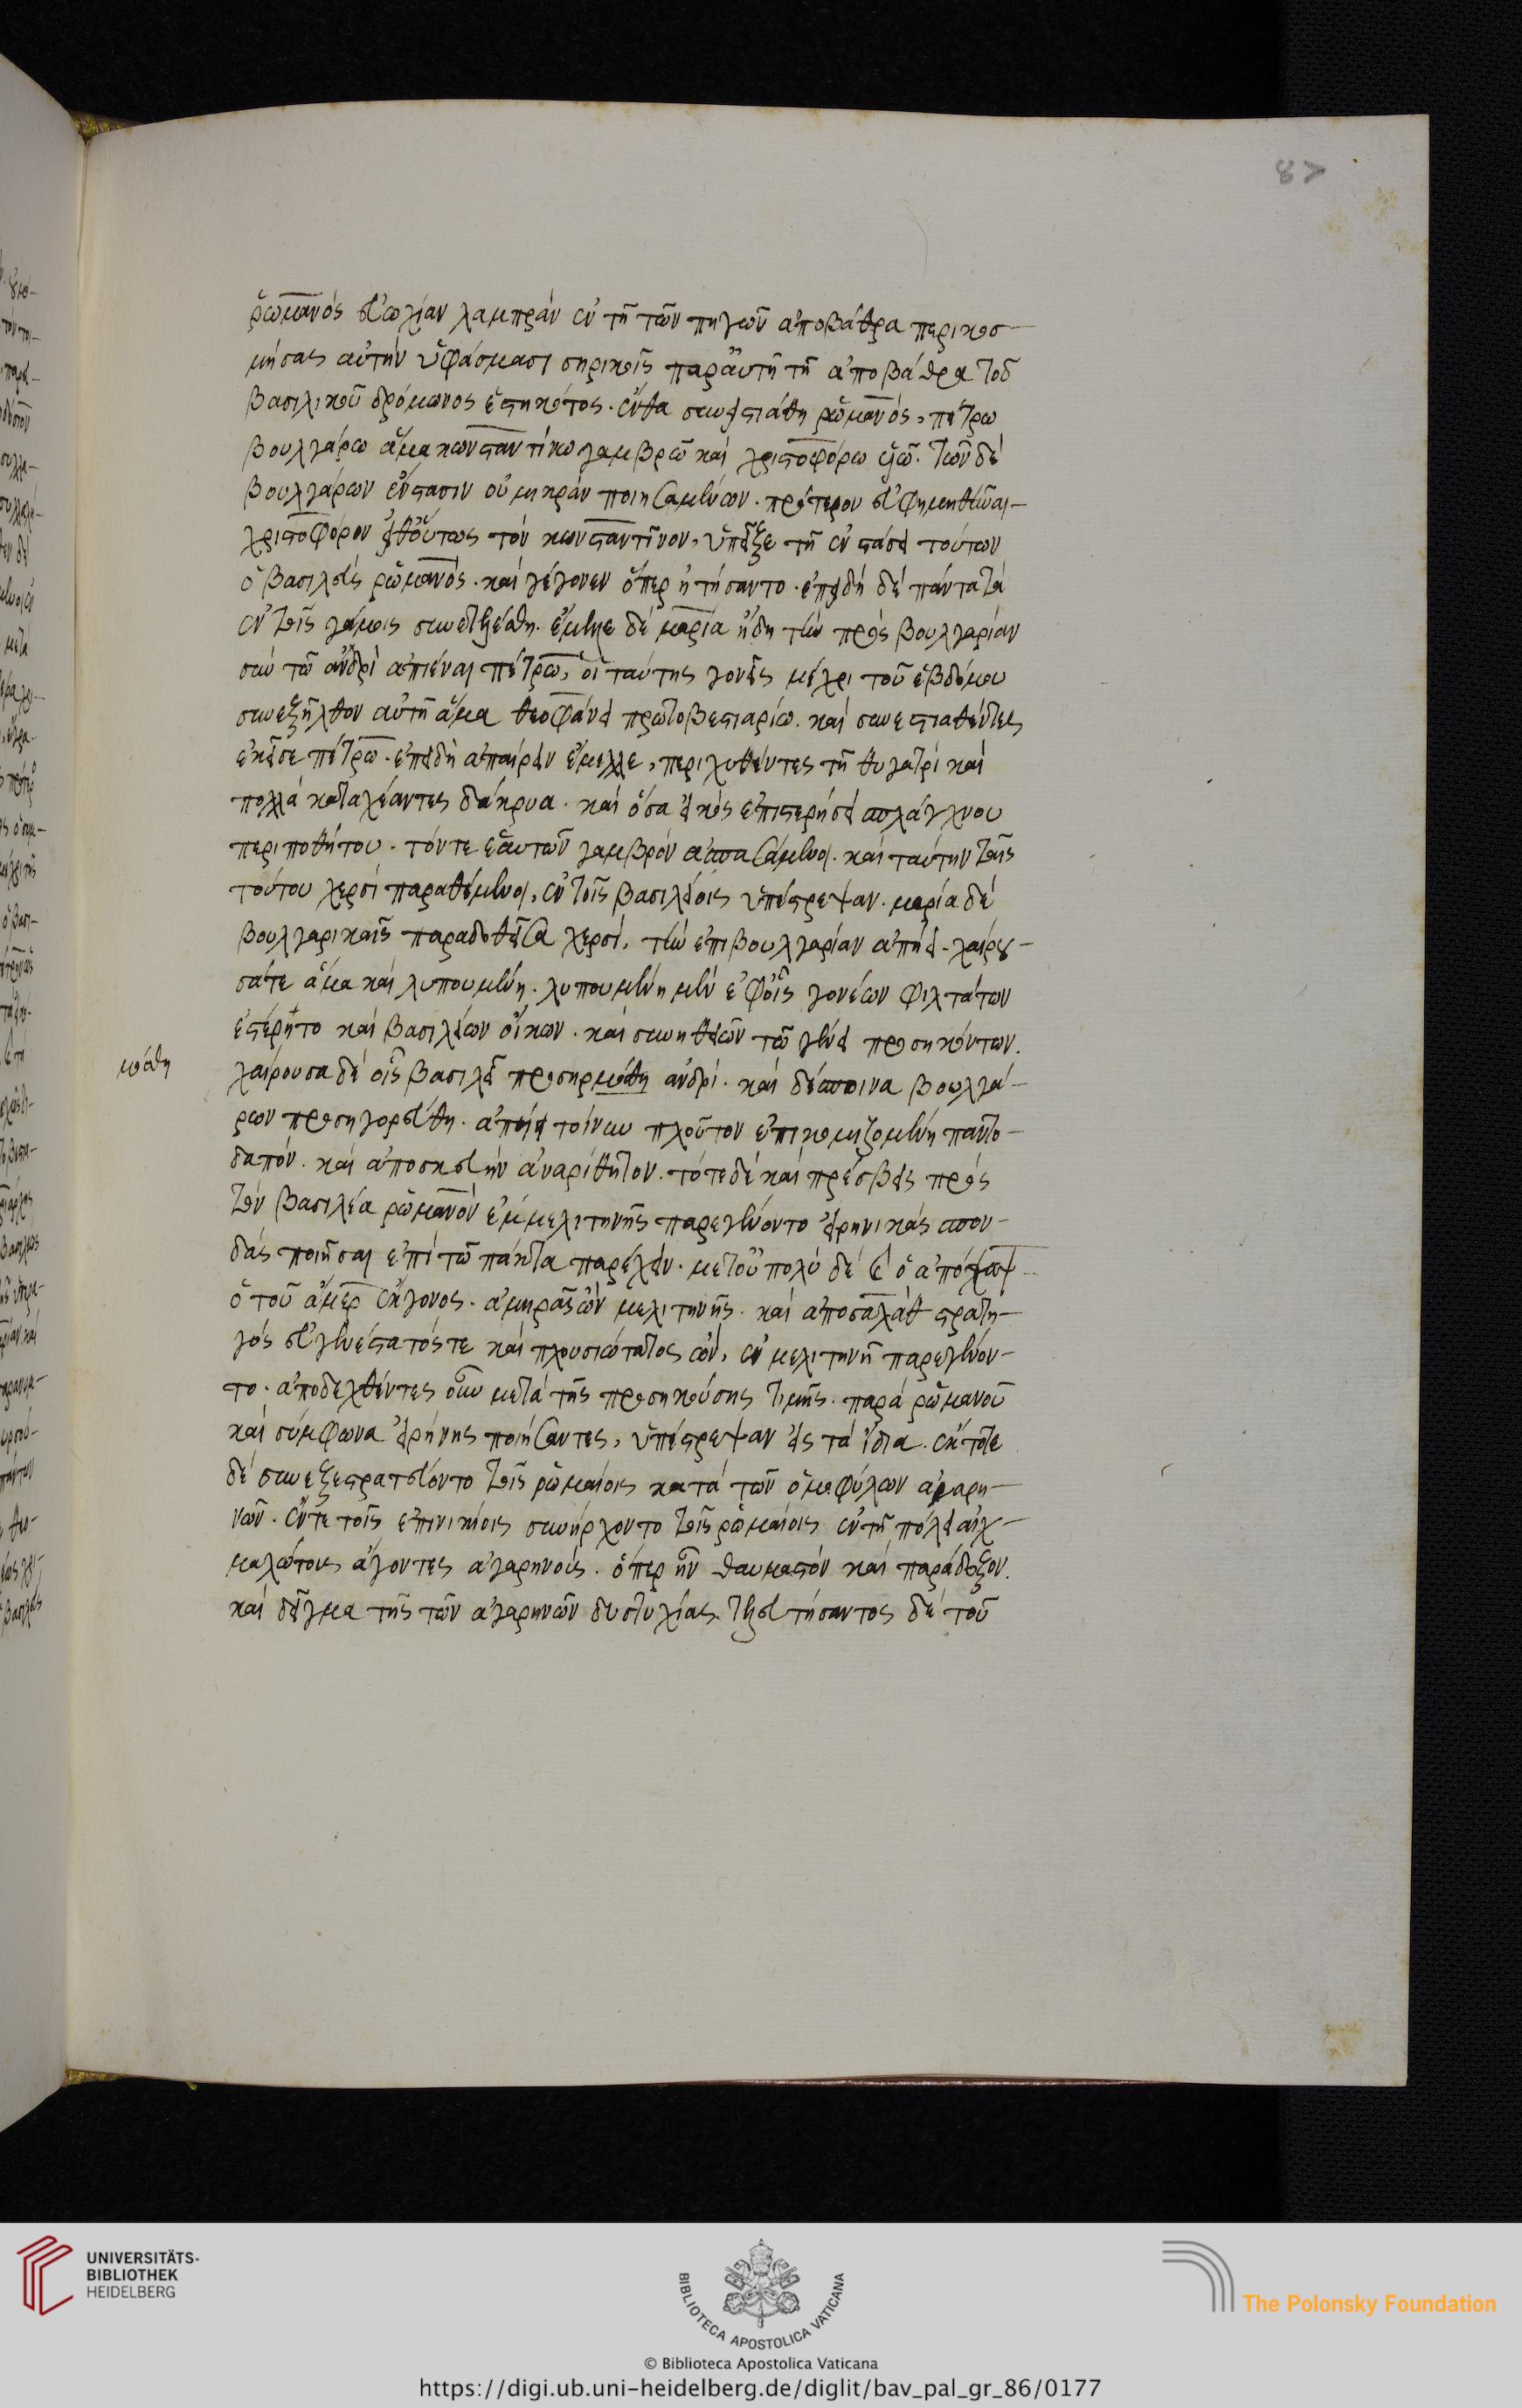 87
ῥωμανός εὐωχίαν λαμπράν ἐν τῇ τῶν πηγῶν ἀποβάθρα περικοσ-
μήσας αὐτήν ὑφάσμασι σηρικοῖς παρ' αὐτῇ τῇ ἀποβάθρα τοῦ
βασιλικοῦ δρόμωνος ἑστηκότος. ἔνθα συνειστιάθη ῥωμανός, πέτρω
βουλγάρω ἅμα κωνσταντίνω γαμβρῶ καί χριστοφόρω υἱῶ. τῶν δέ
βουλγάρων ἔνστασιν οὐ μικράν ποιησαμένων. πρότερον εὐφημισθῆναι
χριστοφόρον εἶθ' οὕτως τόν κωνσταντῖνον, ὑπεῖξε τῇ ἐνστάσει τούτων
ὁ βασιλεύς ῥωμανός. καί γέγονεν ὅπερ ἠτήσαντο. ἐπειδή δέ πάντα τά
ἐν τοῖς γάμοις συνετελέσθη. ἔμελλε δέ μαρία ἤδη τήν πρός βουλγαρίαν
σύν τῶ ἀνδρί ἀπιέναι πέτρω, οἱ ταύτης γονεῖς μέχρι τοῦ ἑβδόμου
συνεξῆλθον αὐτῇ ἅμα θεοφάνει πρωτοβεστιαρίω. καί συνεστιαθέντες
ἐκεῖσε πέτρω. ἐπειδή ἀπαίρειν ἔμελλε, περιχυθέντες τῇ θυγατρί καί
πολλά καταχέαντες δάκρυα. καί ὅσα εἰκός ἐπιστερήσει σπλάγχνου
περιποθήτου. τόν τε ἑαυτῶν γαμβρόν ἀσπασάμενοι. καί ταύτην ταῖς
τούτου χερσί παραθέμενοι, ἐν τοῖς βασιλείοις ὑπέστρεψαν. μαρία δέ
βουλγαρικαῖς παραδοθεῖσα χερσί, τήν ἐπί βουλγαρίαν ἀπῄει. χαίρου-
σά τε ἅμα καί λυπουμένη. λυπουμένη μέν ἐφ' οἷς γονέων φιλτάτων
ἐστέρητο καί βασιλείων οἴκων. καί συνηθειῶν τῶ γένει προσηκόντων.
χαίρουσα δέ οἷς βασιλεῖ προσηρμόσθη ἀνδρί. καί δέσποινα βουλγά-
μόσθη
ρων προσηγορεύθη. ἀπῄει τοίνυν πλοῦτον ἐπικομιζομένη παντο-
δαπόν. καί ἀποσκευήν ἀναρίθμητον. τότε δέ καί πρέσβεις πρός
τόν βασιλέα ῥωμανόν ἐκ μελιτηνῆς παρεγένοντο εἰρηνικάς σπον-
δάς ποιῆσαι ἐπί τῶ πάκτα παρέχειν. μετ' οὐ πολύ δέ καί ὁ ἀπόχαψ
ὁ τοῦ ἄμερ ἔκγονος. ἀμηρᾶς ὤν μελιτηνῆς. καί ἀποσαλάθ στρατη-
γός εὐγενέστατός τε καί πλουσιώτατος ὤν, ἐν μελιτηνῇ παρεγένον-
το. ἀποδεχθέντες οὖν μετά τῆς προσηκούσης τιμῆς. παρά ῥωμανοῦ
καί σύμφωνα εἰρήνης ποιήσαντες, ὑπέστρεψαν εἰς τά ἴδια. ἔκτοτε
δέ συνεξεστρατεύοντο τοῖς ῥωμαίοις κατά τῶν ὁμοφύλων ἀγαρη-
νῶν. ἔν τε τοῖς ἐπινικίοις συνήρχοντο τοῖς ῥωμαίοις ἐν τῇ πόλει αἰχ-
μαλώτους ἄγοντες ἀγαρηνούς. ὅπερ ἦν θαυμαστόν καί παράδοξον.
καί δεῖγμα τῆς τῶν ἀγαρηνῶν δυστυχίας. τελευτήσαντος δέ τοῦ
UNIVERSITÄTS-
BIBLIOTHEK
HEIDELBERG
BIBLIOTECA APOSTOLICA VATICANA
The Polonsky Foundation
© Biblioteca Apostolica Vaticana
https://digi.ub.uni-heidelberg.de/diglit/bav_pal_gr_86/0177